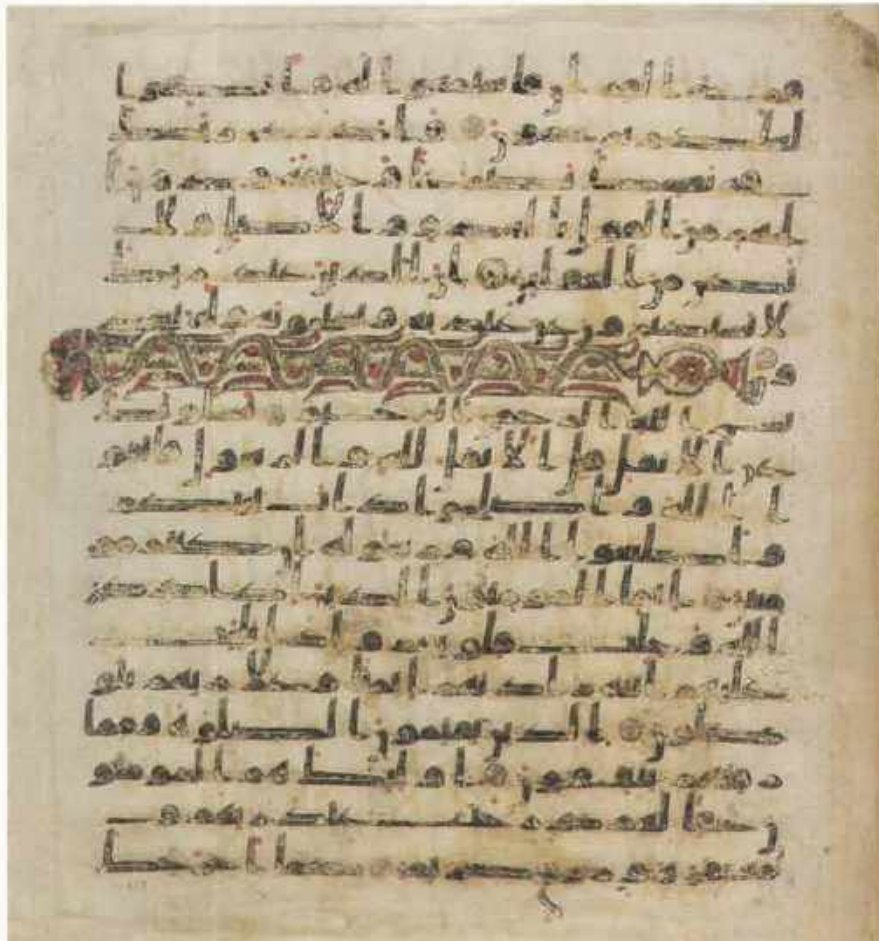 قرى القران فاستمعوا له وانصتوا
لعلكم ترحمون واذكر ر
بك في نفسك تضرعا وخيفة ودون ا
لجهر من القول بالغدو والاصال ولا
تكن من الغفلين ان الذين عند ربك
لا يستكبرون عن عبادته ويسبحونه وله يسجد
ون
بسم الله الرحمن الرحيم يسلونك
عن الانفال قل الانفال لله والرسول فاتقو
ا الله واصلحوا ذات بينكم
واطيعوا الله ورسوله ان كنتم مو
منين انما المومنون الذين اذا ذكر
الله وجلت قلوبهم واذا تليت
عليهم ايته زادتهم ايمنا وعلى ربهم يتو
كلون الذين يقيمون الصلوة ومما
رزقنهم ينفقون اولئك هم المومنو
ن حقا لهم درجت عند ربهم و
مغفرة ورزق كريم كما اخرجك